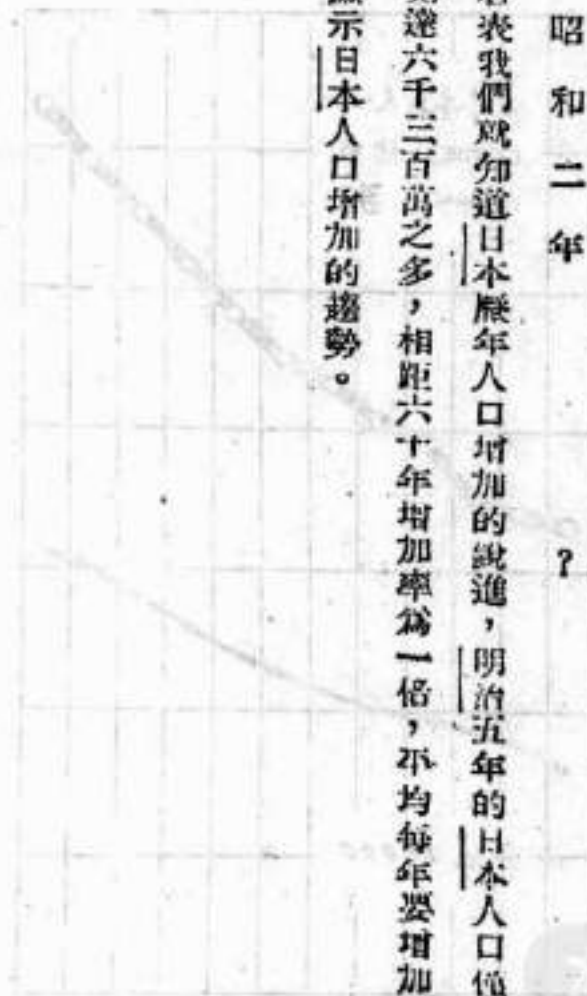 昭和二年 ?
表我們就知道日本歷年人口增加的銳進，明治五年的日本人口僅
達六千三百萬之多，相距六十年增加率爲一倍，平均每年要增加
示日本人口增加的趨勢。